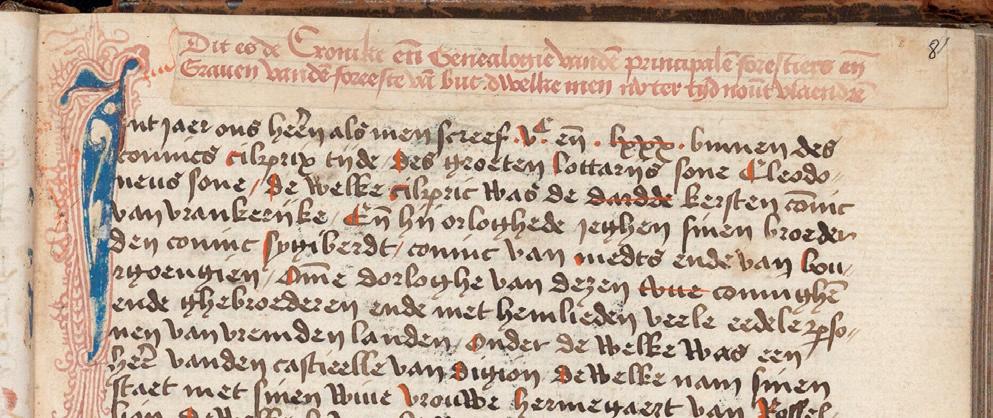 8
Dit es de Cronike en̄ Genealogie vandē principalē forestiers en̄
Grauen vande foreeste vā buc. dwelke men nv ter tyd nout vlaendrē
Int jaer ons heēn als men screef .vᶜ. en̄ . lxxx . binnen des
conincs cilprix tyde / Des grooten lottarijs sone Cleodo-
neus sone / De welke cilpric was de dardde kersten cōinc
van vrankerijke / En̄ hy orloghede jeghen sinen broeder
den coninc sygiberdt / coninc van medts ende van bou-
rgoengien / Om̄e dorloghe van dezen twee coninghē
ende ghebroederen ende met hemlieden veele eedele pso-
nen van vremden landen / Onder de welke was een
heēr vanden castieelle van digion / De welke nam sinen
staet met sinen wiue vrouwe hermegaert van Rossel-